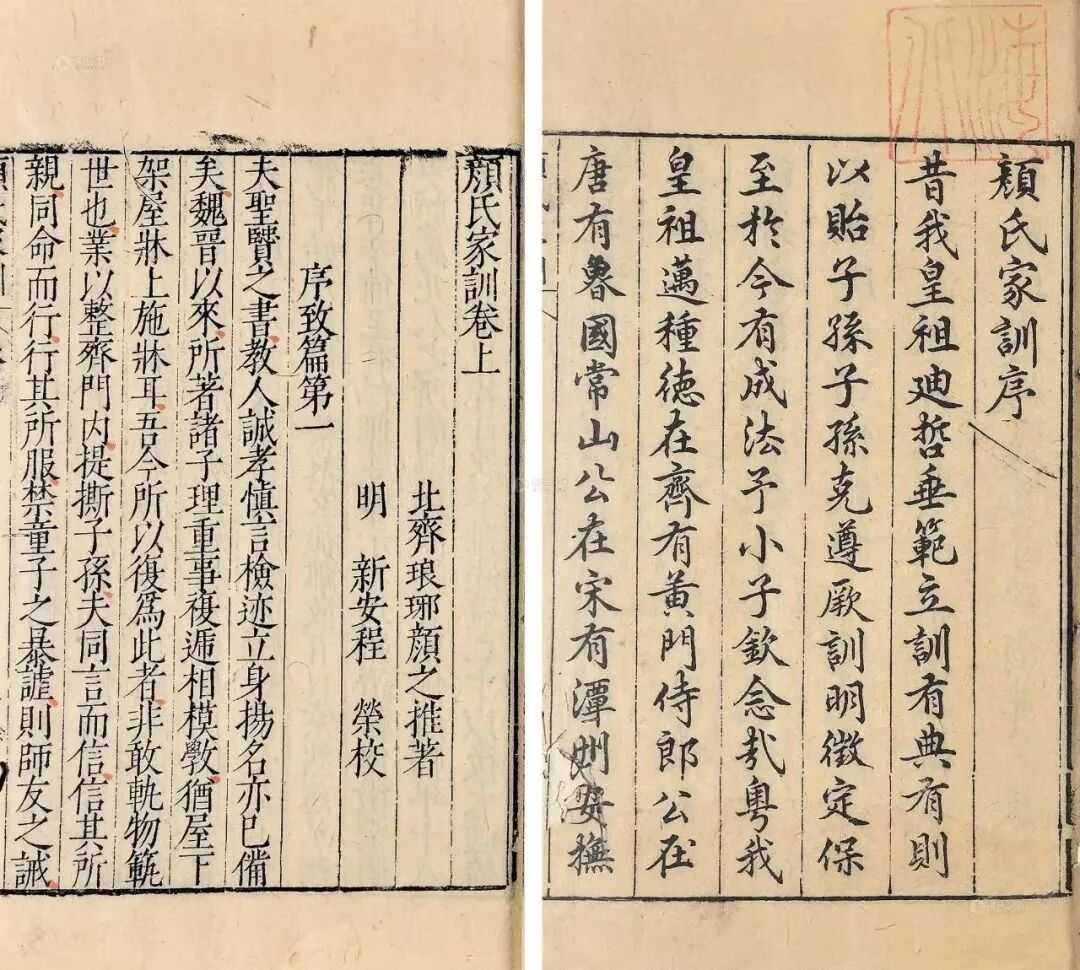 顏氏家訓序
昔我皇祖廸哲垂範立訓有典有則
以貽子孫子孫克遵厥訓明徵定保
至於今有成法予小子欽念哉粵我
皇祖邁種德在齊有黃門侍郎公在
唐有魯國常山公在宋有潭州安撫
顏氏家訓卷上
北齊琅琊顏之推著
明 新安程 榮校
序致篇第一
夫聖賢之書教人誠孝慎言檢迹立身揚名亦已備
矣魏晉以來所著諸子理重事複遞相模斆猶屋下
架屋牀上施牀耳吾今所以復爲此者非敢軌物範
世也業以整齊門内提撕子孫夫同言而信信其所
親同命而行行其所服禁童子之暴謔則師友之誡